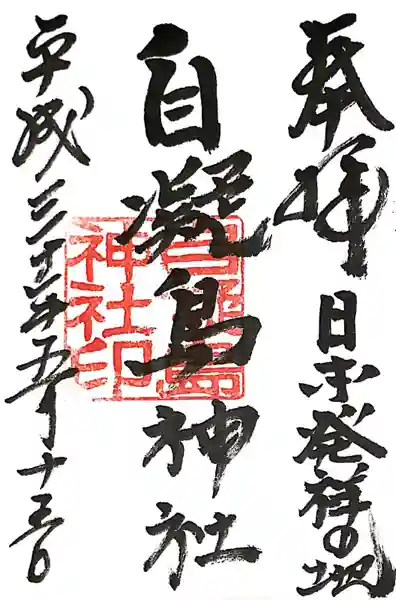 奉拝
日本発祥の地
自凝島神社
自凝島神社印
平成三十年五月十三日